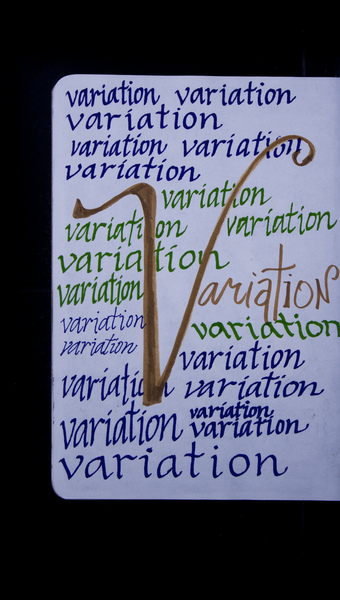 variation variation
variation
variation variation
variation
variation
variation variation
variation
variation
Variation
variation
variation
variation
variation
variation variation
variation
variation variation
variation